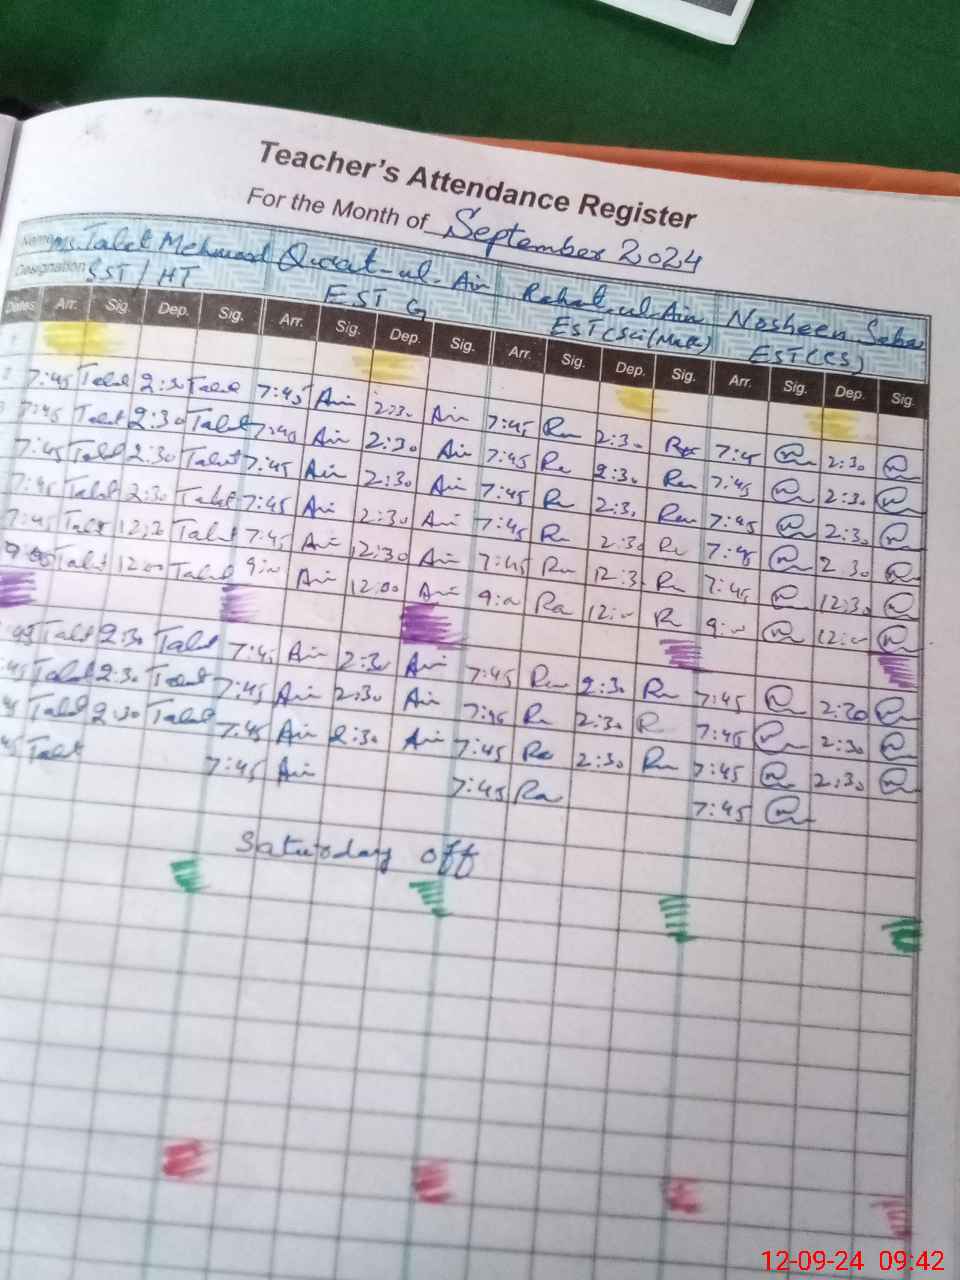 Teacher's Attendance Register
For the Month of September 2024
Name Ms. Talat Mehmood Qurat-ul-Ain Rahat-ul-Ain Nosheen Saba
Designation SST / HT EST G EST (Sci/Math) EST (CS)
Dates Arr. Sig. Dep. Sig. Arr. Sig. Dep. Sig. Arr. Sig. Dep. Sig. Arr. Sig. Dep. Sig.
1
2 7:45 Talat 2:30 Talat 7:45 Ain 2:30 Ain 7:45 Ra 2:30 7:45 2:30
3 7:45 Talat 2:30 Talat 7:45 Ain 2:30 Ain 7:45 Ra 2:30 Ra 7:45 2:30
7:45 Talat 2:30 Talat 7:45 Ain 2:30 Ain 7:45 Ra 2:30 Ra 7:45 2:30
7:45 Talat 2:30 Talat 7:45 Ain 2:30 Ain 7:45 Ra 2:30 Ra 7:45 2:30
7:45 Talat 12:30 Talat 7:45 Ain 12:30 Ain 7:45 Ra 12:30 Ra 7:45 12:30
9:00 Talat 12:00 Talat 9:00 Ain 12:00 Ain 9:00 Ra 12:00 R 9:00 12:00
:45 Talat 2:30 Talat 7:45 Ain 2:30 Ain 7:45 Ra 2:30 Ra 7:45 2:30
:45 Talat 2:30 Talat 7:45 Ain 2:30 Ain 7:45 Ra 2:30 R 7:45 2:30
45 Talat 2:30 Talat 7:45 Ain 2:30 Ain 7:45 Ra 2:30 Ra 7:45 2:30
45 Talat 7:45 Ain 7:45 Ra 7:45
Saturday off
12-09-24 09:42